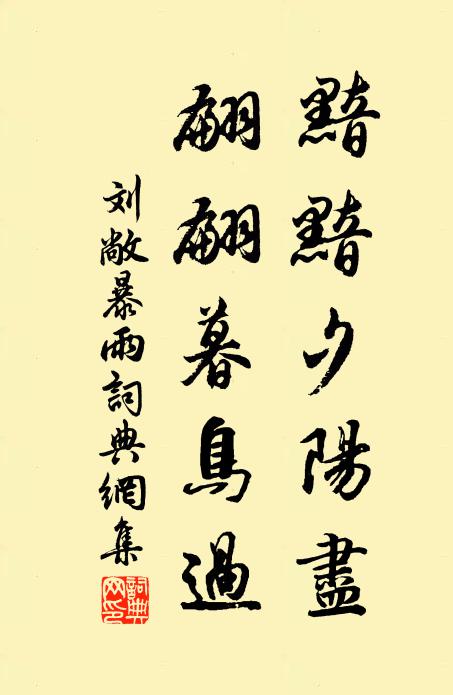 黯黯夕陽盡
翩翩暮鳥過
刘敞暴雨詞典網集
詞典網印